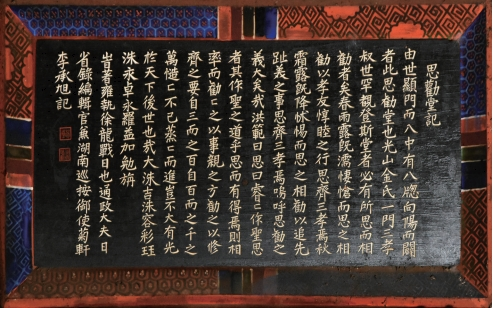 思勸堂記
由世顯門而八中有八牕向陽而闢
者此思勸堂也光山金氏一門三孝
叔世罕觀登斯堂者必有所思而相
勸者矣春雨露旣濡悽愴而思之相
勸以孝友惇睦之行思齊三孝焉秋
霜露旣降怵惕而思之相勸以追先
趾義之事思齊三孝焉嗚呼思勸之
義大矣哉洪範曰思曰睿睿作聖思
者其作聖之道乎思而有得焉則相
率而勸勸之以事親之方勸之以修
齊之要自三而之百自百而之千之
萬慥慥不已烝烝而進豈不大有光
於天下後世也我大洙吉洙容彩珏
洙永卓永羅益加勉旃
旹著雍執徐龍戰日也通政大夫日
省錄編輯官兼湖南巡按御使菊軒
李承旭記